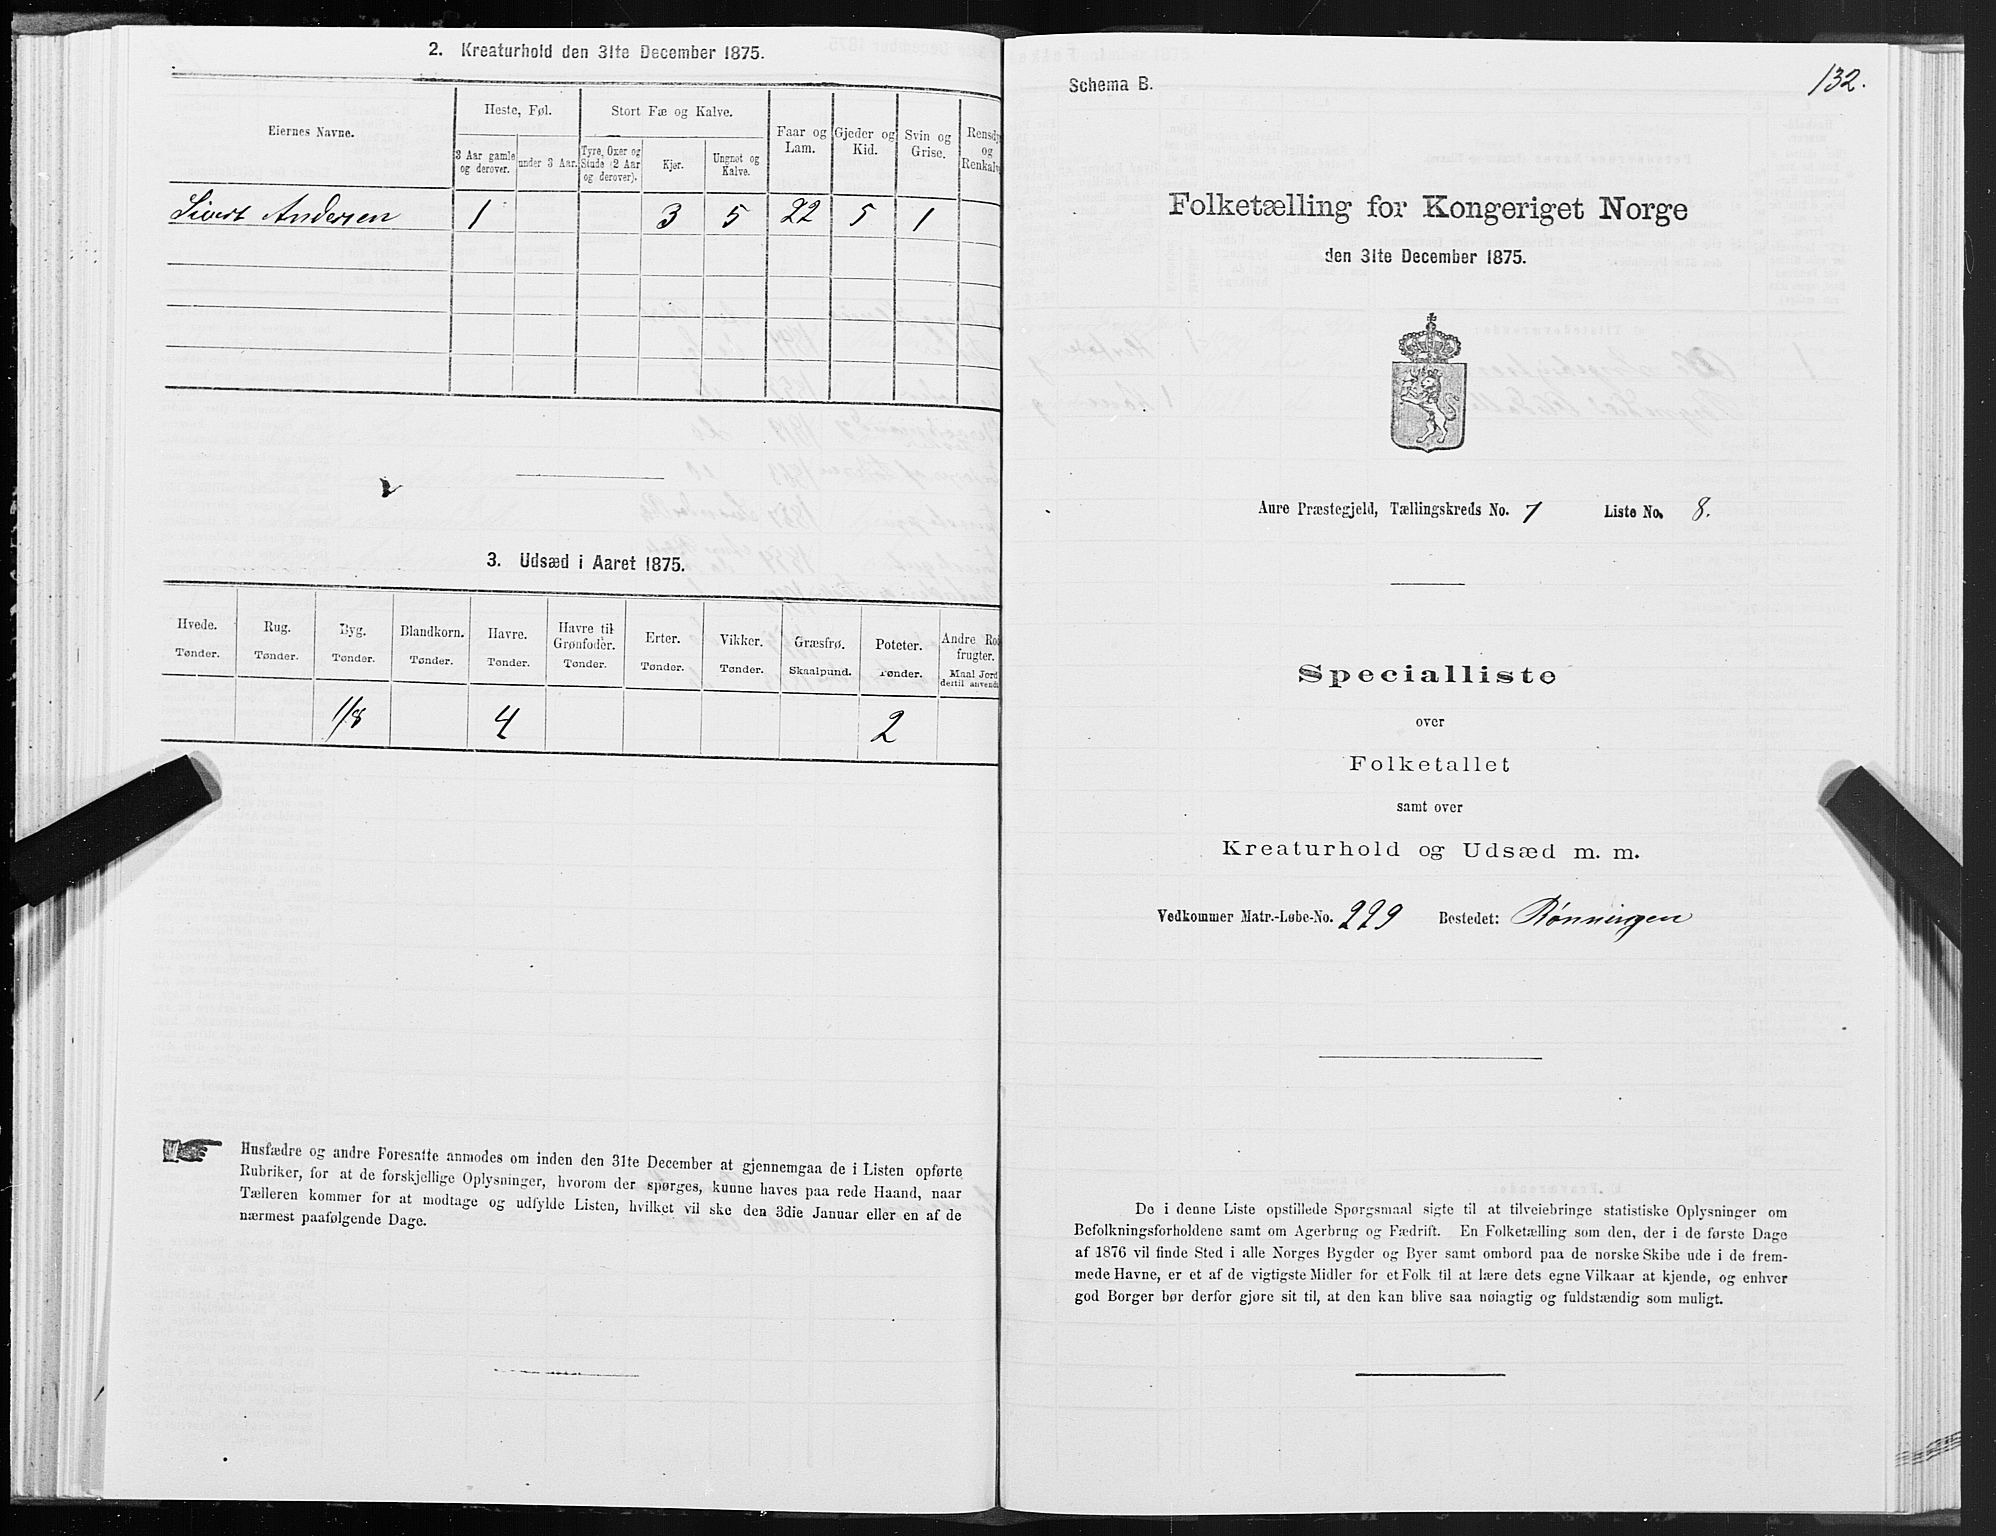 2. Kreaturhold den 31te December 1875.
Eiernes Navne.
Heste, Føl.
Stort Fæ og Kalve.
Faar og Lam.
Gjeder og Kid.
Svin og Grise.
Rensdy
og
Renkalv
3 Aar gamle og derover.
under 3 Aar.
Tyre, Oxer og Stude (2 Aar og derover).
Kjør.
Ungnøt og Kalve.
Sivert Andersen 1 3 5 22 5 1
3. Udsæd i Aaret 1875.
Hvede. Rug. Byg. Blandkorn. Havre. Havre til Grønfoder. Erter. Vikker. Græsfrø. Poteter. Andre Ro
frugter.
Tønder. Tønder. Tønder. Tønder. Tønder. Tønder. Tønder. Tønder. Skaalpund. Tønder. Maal Jord
dertil anvendt
1/8 4 2
Husfædre og andre Foresatte anmodes om inden den 31te December at gjennemgaa de i Listen opførte
Rubriker, for at de forskjellige Oplysninger, hvorom der spørges, kunne haves paa rede Haand, naar
Tælleren kommer for at modtage og udfylde Listen, hvilket vil ske den 3die Januar eller en af de
nærmest paafølgende Dage.
132.
Schema B.
Folketælling for Kongeriget Norge
den 31te December 1875.
Aure Præstegjeld, Tællingskreds No. 7 Liste No. 8.
Specialliste
over
Folketallet
samt over
Kreaturhold og Udsæd m. m.
Vedkommer Matr.-Løbe-No. 229 Bostedet: Rønningen
De i denne Liste opstillede Spørgsmaal sigte til at tilveiebringe statistiske Oplysninger om
Befolkningsforholdene samt om Agerbrug og Fædrift. En Folketælling som den, der i de første Dage
af 1876 vil finde Sted i alle Norges Bygder og Byer samt ombord paa de norske Skibe ude i de frem-
mede Havne, er et af de vigtigste Midler for et Folk til at lære dets egne Vilkaar at kjende, og enhver
god Borger bør derfor gjøre sit til, at den kan blive saa nøiagtig og fuldstændig som muligt.